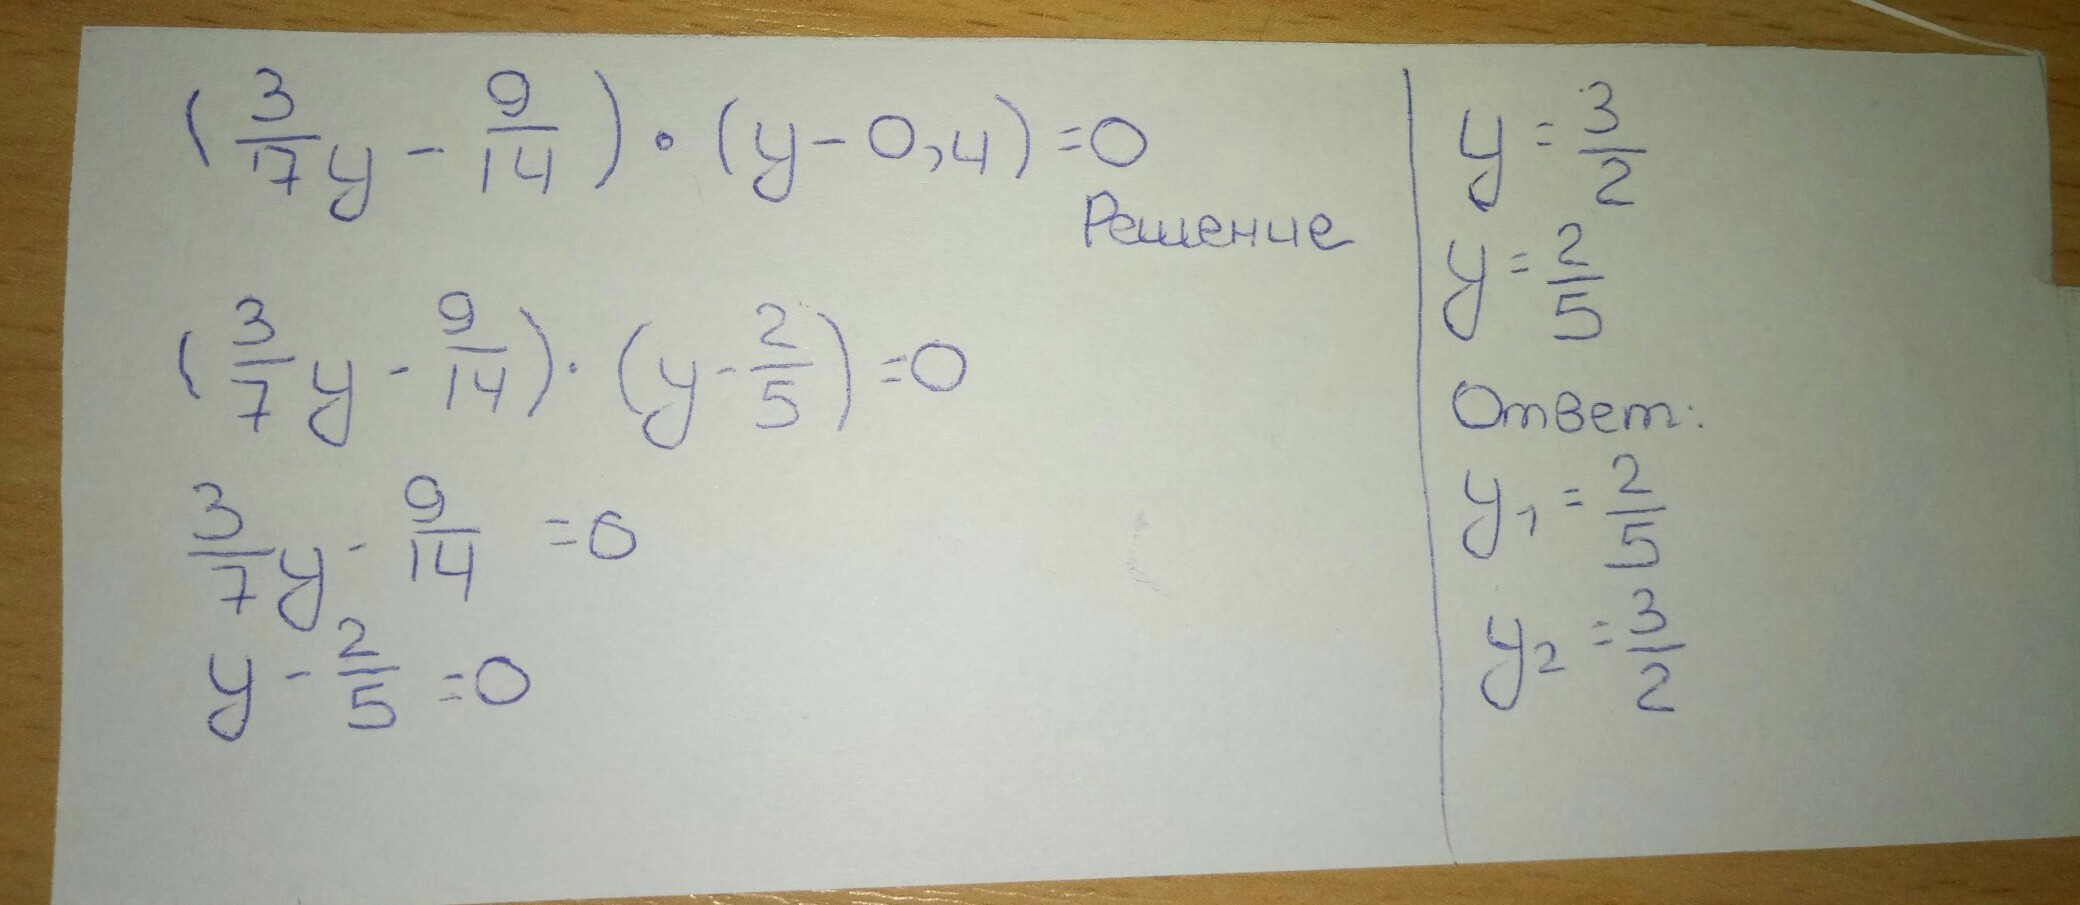 (3/7 y - 9/14) · (y - 0,4) = 0
Решение
(3/7 y - 9/14) · (y - 2/5) = 0
3/7 y - 9/14 = 0
y - 2/5 = 0
y = 3/2
y = 2/5
Ответ:
y₁ = 2/5
y₂ = 3/2